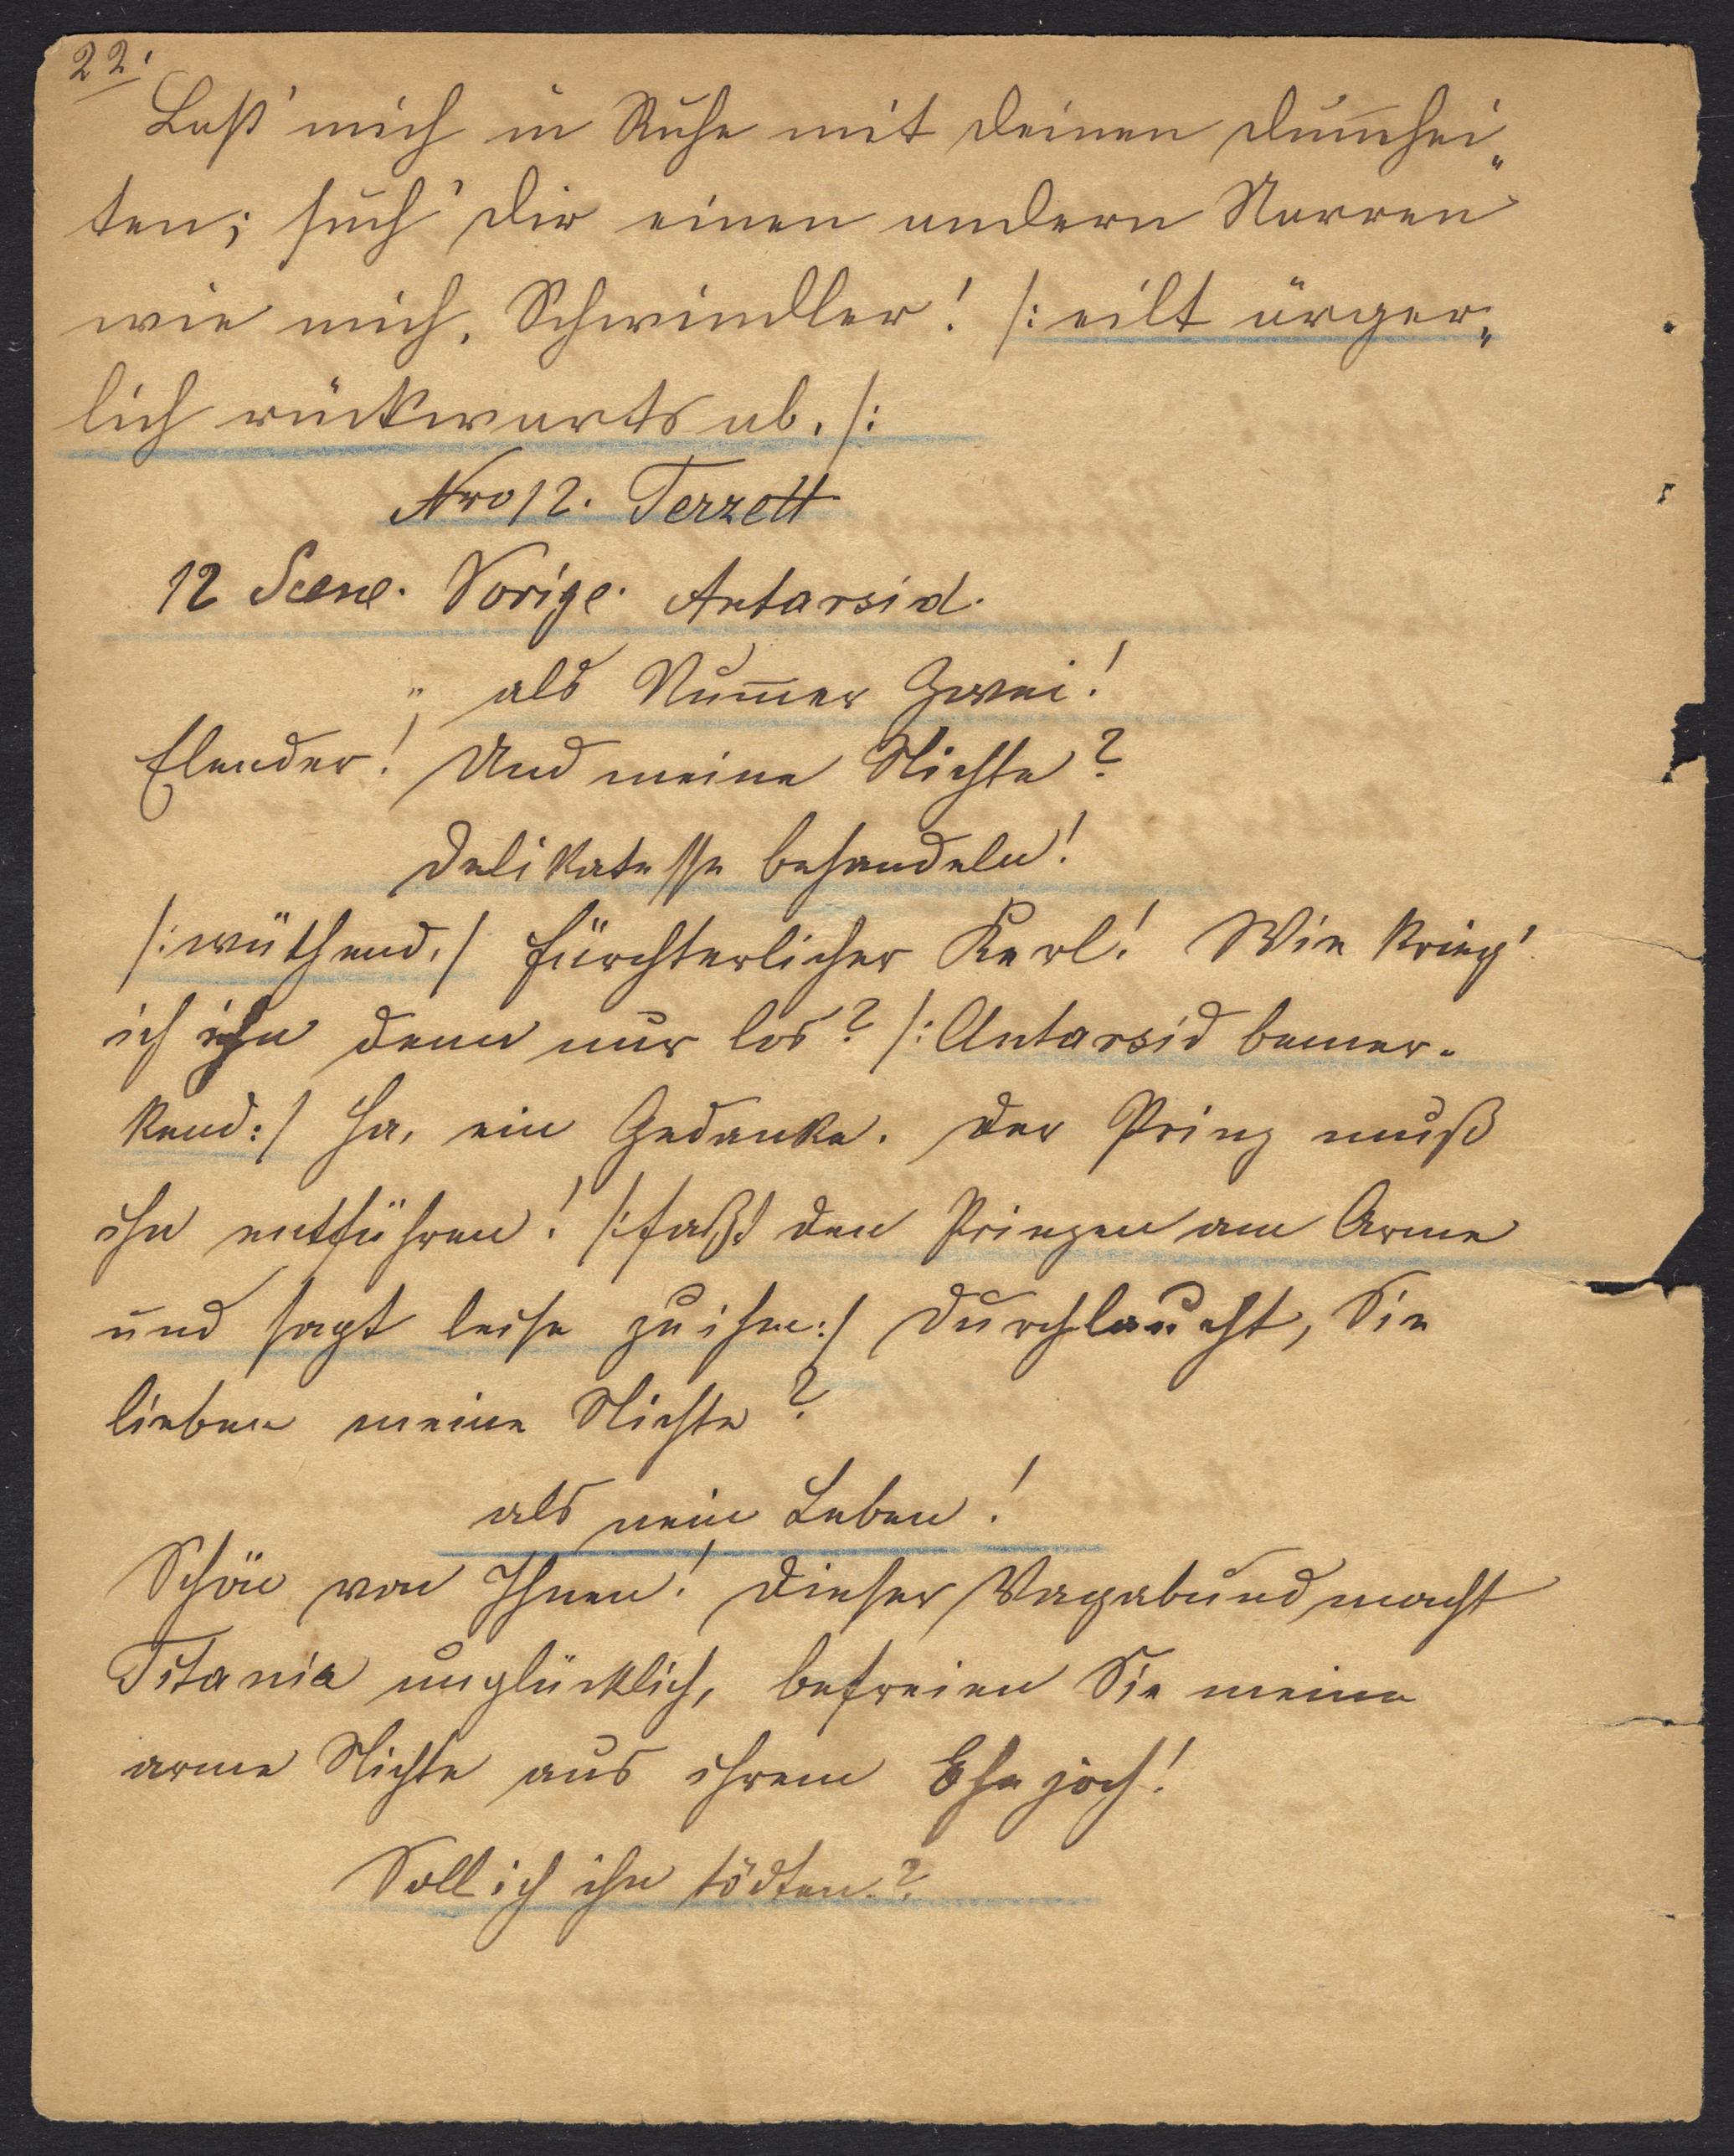 22.
Laß' mich in Ruhe mit deinen Dum̅hei„
ten; such' dir einen andern Narren
wie mich, Schwindler! /: eilt ärger„
lich rückwarts ab. /:
Nro 12. Terzett
12 Scene. Vorige. Antarsid.
„ als Num̅er Zwei!
Elender! Und meine Nichte?
Delikatesse behandeln!
/: wüthend. / Fürchterlicher Kerl! Wie krieg'
ich ihn denn nur los? /: Antarsid bemer-
kend: / Ha, ein Gedanke. Der Prinz muß
ihn entführen! /: faßt den Prinzen am Arme
und sagt leise zu ihm: / Durchlaucht, Sie
lieben meine Nichte?
als mein Leben!
Schön von Ihnen! Dieser Vagabund macht
Titania unglücklich, befreien Sie meine
arme Nichte aus ihrem Ehejoch!
Soll ich ihn tödten.?